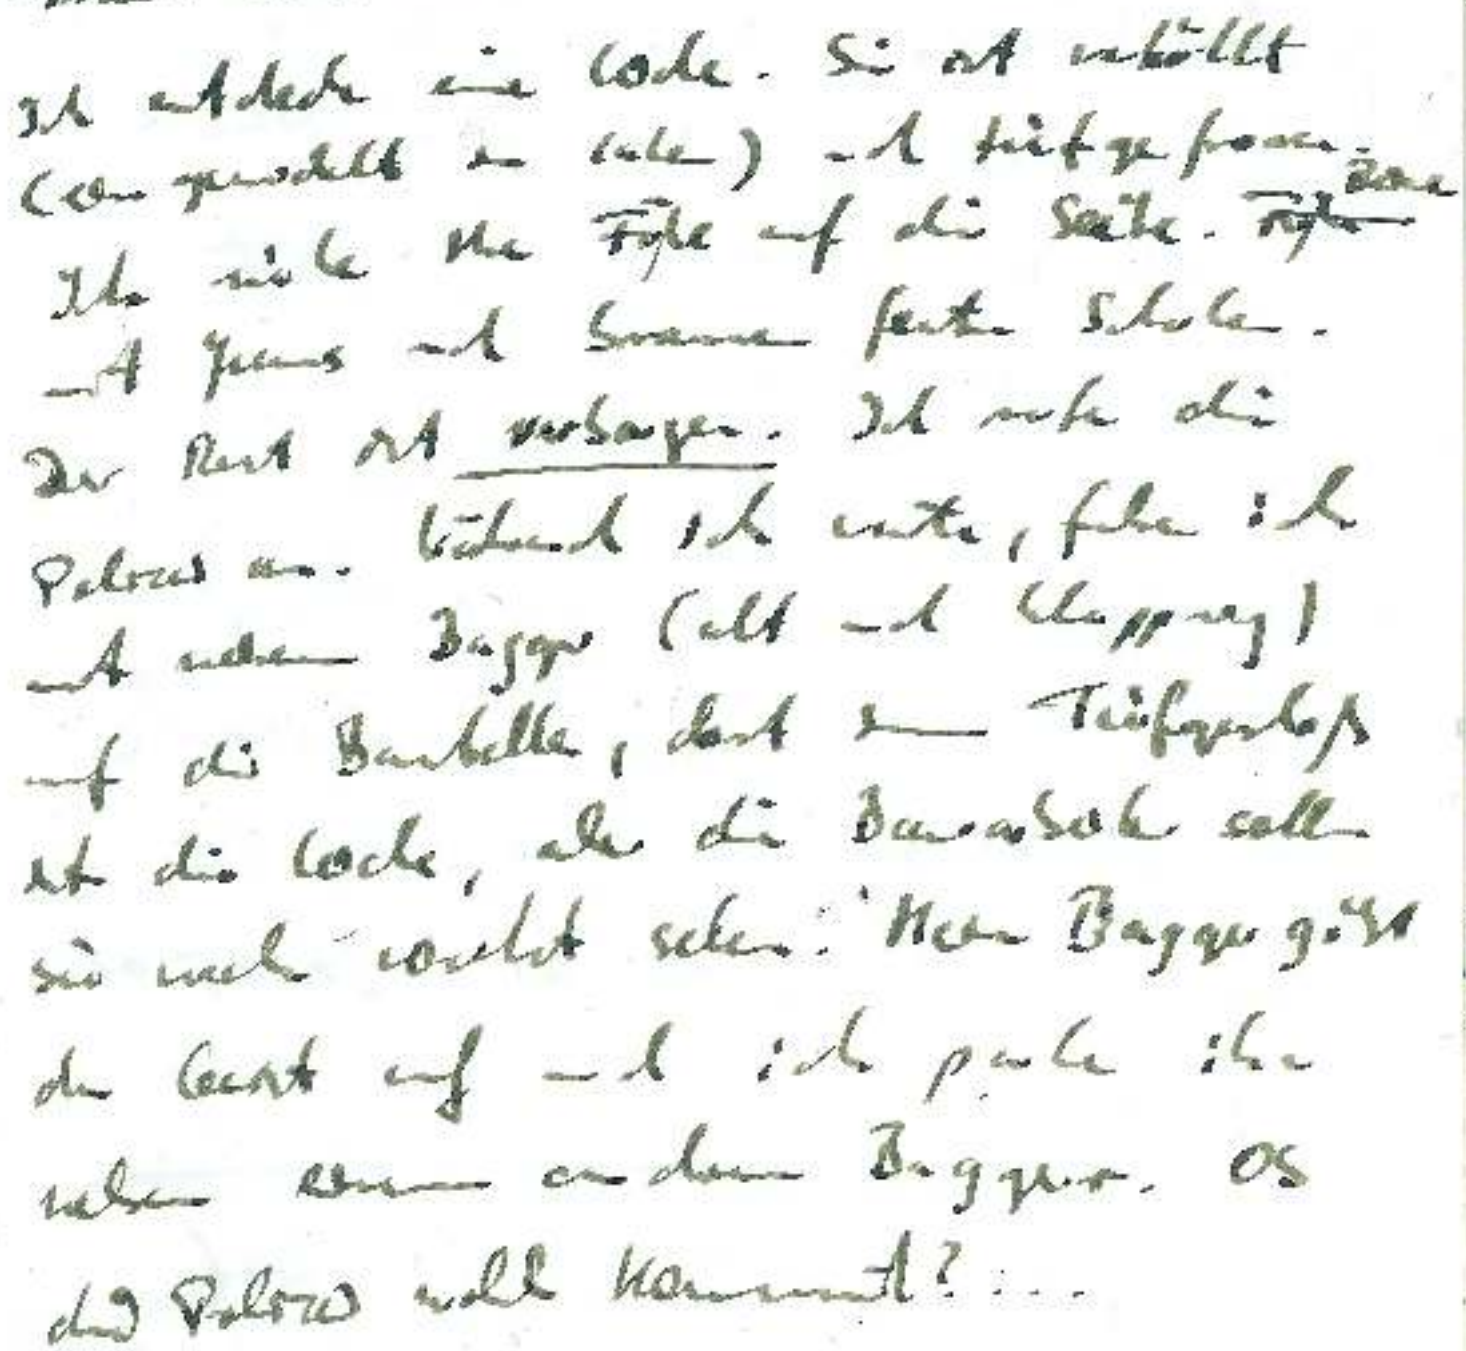 Ich entdecke eine Leiche. Sie ist verhüllt
(eingewickelt in Laken) und tiefgefroren.
Ich rücke ihre Füße auf die Seite. Beine
mit Jeans und braune feste Schuhe.
Der Rest ist verborgen. Ich rufe die
Polizei an. Während ich warte, fahre ich
mit meinem Bagger (alt und klapprig)
auf die Baustelle, dort im Tiefgeschoß
ist die Leiche, aber die Bauarbeiter sollen
sie nicht sehen. Mein Bagger gibt
den Geist auf und ich parke ihn
neben einem anderen Bagger. Ob
die Polizei wohl kommt?...